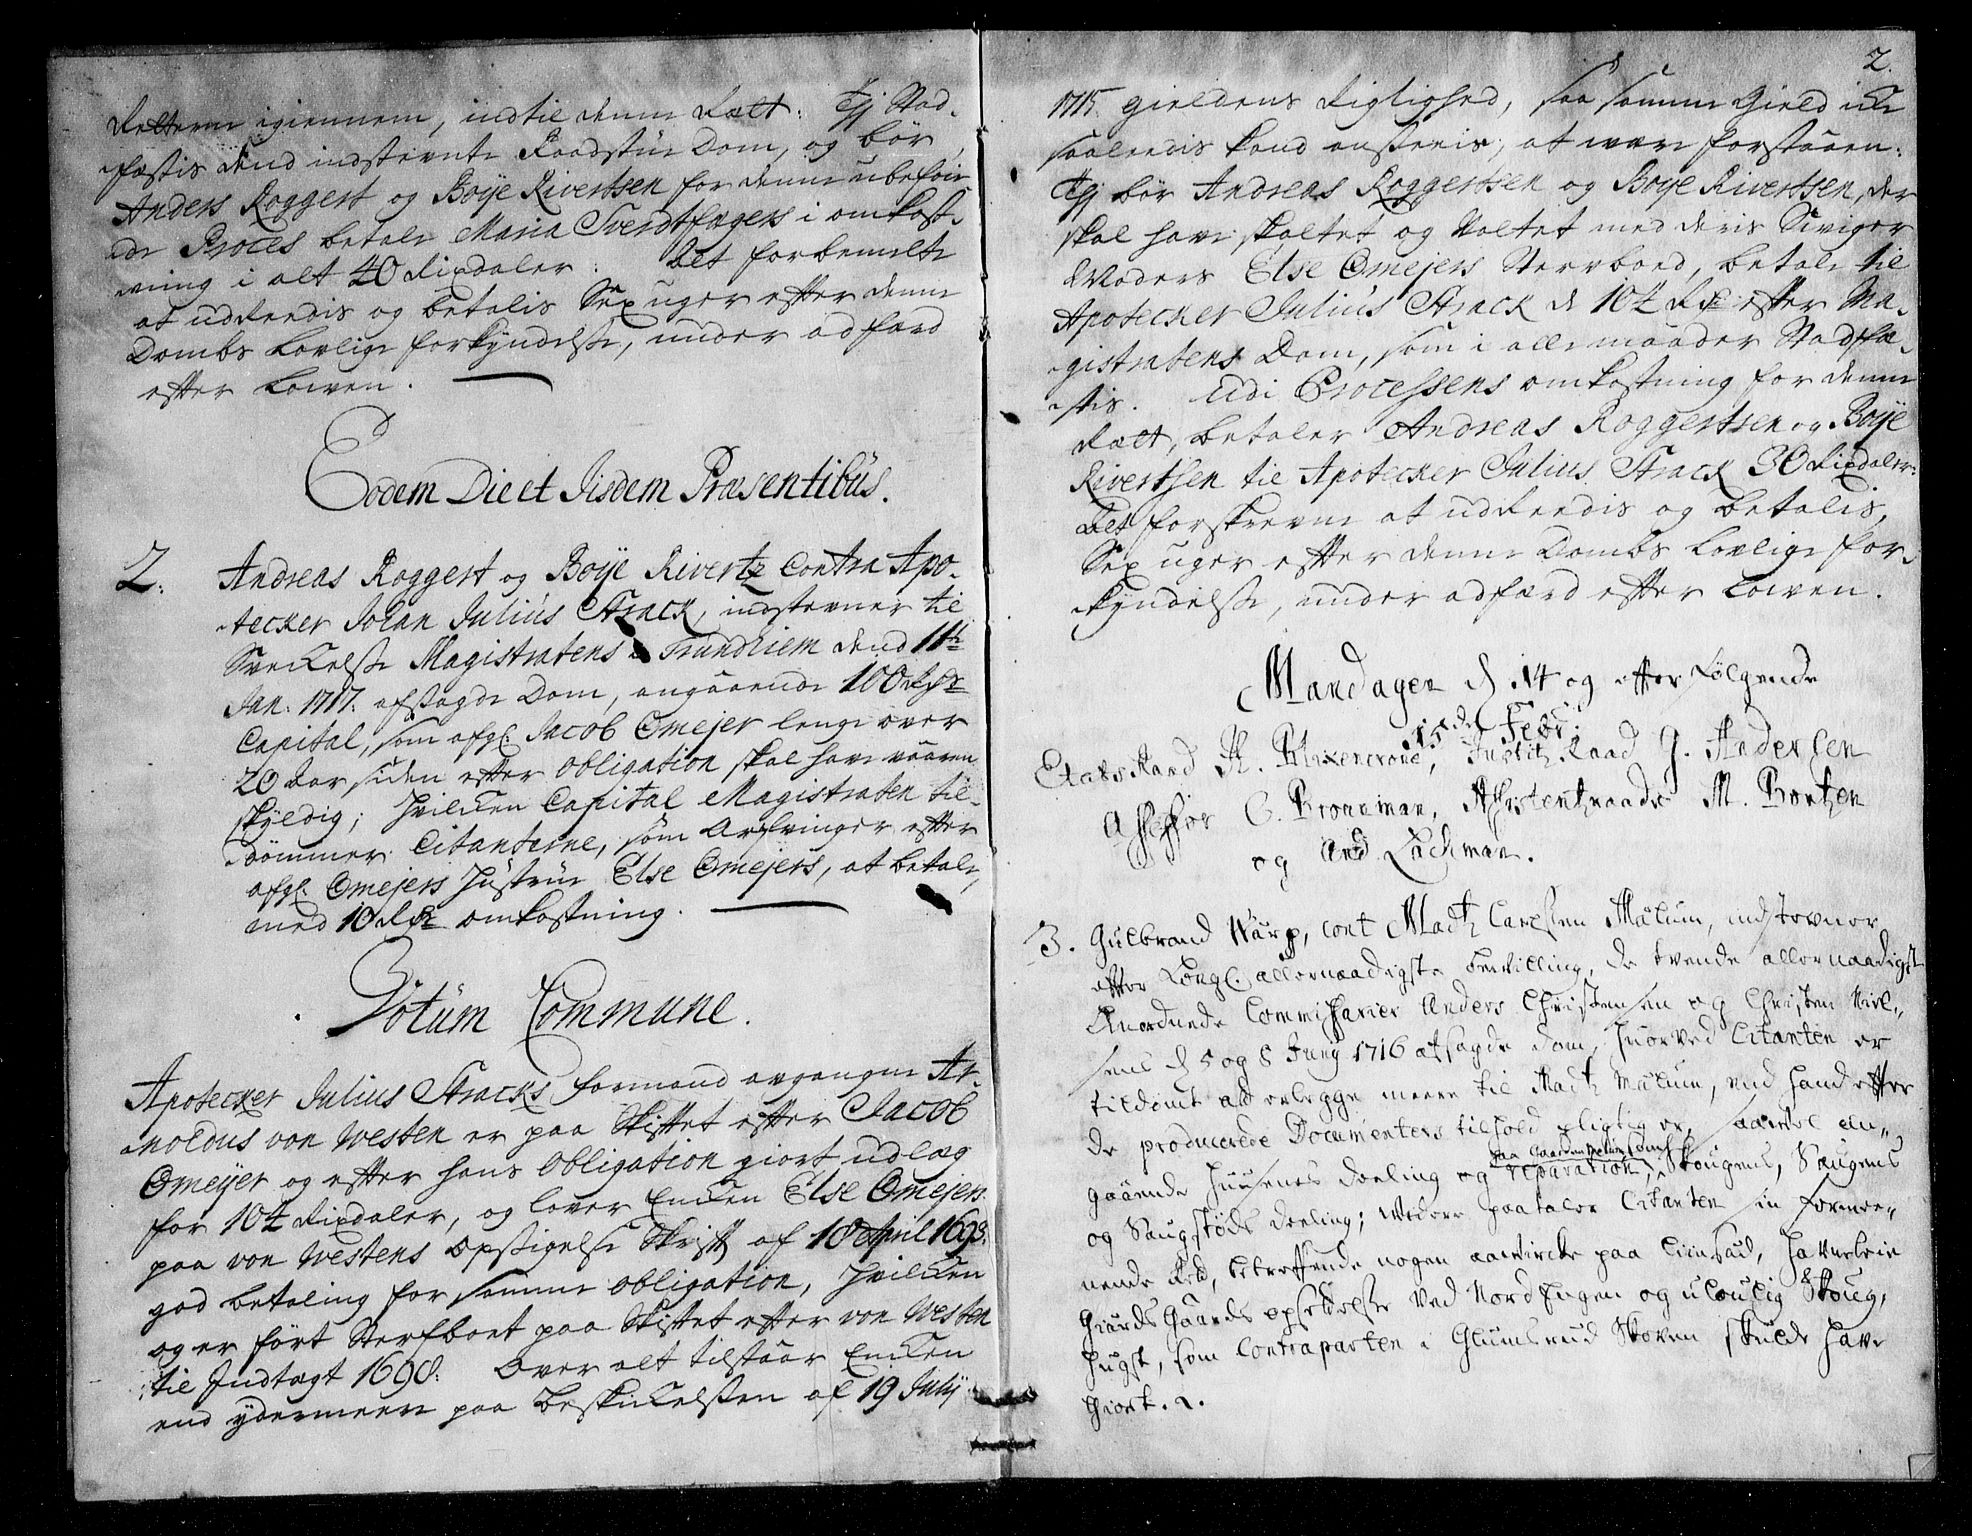 Retterne igiennem, indtil denne Rætt: Thj Stad-
fæstis dend indstevnte Raadstue Dom, og bør
Anders Roggert og Boÿe Rivertsen for denne ubeføie
de Proces betale Maria Sverdtfegers i omkost-
ning i alt 40 Rixdaler. Det forbemelte
at udRedis og betalis Sex uger efter denne
Dombs Lovlige forkyndelse, under adfærd
efter Lowen.
Eodem Die et Iisdem Præsentibus.
2. Andreas Roggert og Boÿe Rivertz Contra Apo-
tecker Johan Julius Strack, indstevner til
Sveckelse Magistratens i Trundhiem dend 11te
Jan. 1717. afsagde Dom, angaaende 100 Rdr
Capital, som afgl. Jacob Omejer lenge over
20 Aar siden efter Obligation skal have vaaren
skyldig; hvilcken Capital Magistraten til-
dømmer Citanterne, som Arfvinger efter
afgl. Omejers Hustrue Else Omejers, at betale,
med 10 Rdr omkostning.
Votum Commune.
Apotecker Julius Stracks formand avgangne Ar-
noldus von Westen er paa Skiftet efter Jacob
Omeÿer og efter hans Obligation giort udlæg
for 104 Rixdaler, og lover Encken Else Omejers
paa von Westens Opsigelse Skrift af 18 April 1698.
god betaling for samme Obligation, hvilcken
og er ført Sterfboet paa Skiftet efter von Westen
til Indtægt 1698. Over alt tilstaar Encken
end ydermeere paa beskickelsen af 19 Julij
2.
1715. gieldens Rigtighed, saa samme Gield icke
saaledis kand ansees, at være forstaaen:
Thj bør Andreas Roggertsen og Boÿe Rivertsen, der
skal have skaltet og Valtet med deris Sviger
Moders Else Omejers Stervboed, betale til
Apotecker Julius Strack de 104 Rdr efter Ma-
gistratens Dom, som i alle maader Stadfæ-
stis. Udi Processens omkostning for denne
Rætt, betaler Andreas Roggertsen og Boÿe
Rivertsen til Apotecker Julius Strack 30 Rixdaler.
Det forskrevne at udRedis og betalis,
Sex uger efter denne Dombs Lovlige for-
kyndelse, under adfærd efter Lowen.
Mandagen d 14 og efterfølgende
15de Febr.
Etats Raad H. Blixencrone, Justitz Raad J. Andersen
Assessor C. Broneman, Assistentzraade M. Bentzen
og And Lachman.
3. Gulbrand Warp, cont Madtz Carlsen Mælum, indstevner
efter Kongl. allernaadigste Bevilling, de tvende allernaadigst
Anordnede Commissarier Anders Christensen og Christen Niel-
sens d 5 og 8 Junÿ 1716 afsagde dom, hvorved Citanten er
tildømt at erlegge meere til Madtz Mælum, end hand efter
de producerede Documenters tilhold pligtig er, saavel an-
gaaende huusenes deeling og reparation, paa Gaarden Mælum som Skougens, Saugens
og Saugstøds deeling; videre paataler Citanten sin formee-
nende Ret, betreffende nogen aavircke paa
Giærds Gaards opsettelse ved Nord Engen og ulovlig Skoug-
hugst, som Contraparten i Glumsrud Skoven skulde have
giort.